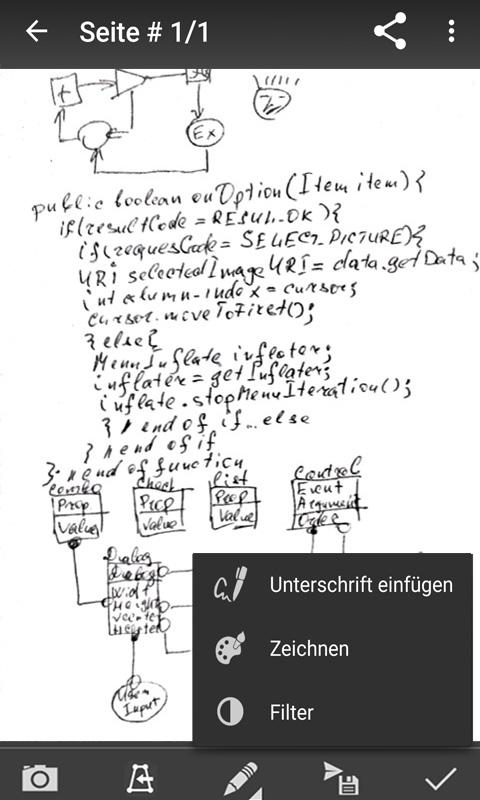 Seite # 1/1
+
Ex
public boolean onOption(Item item){
if(resultCode = RESUL_OK){
if(requesCode = SELECT_PICTURE){
URi selectedImageURI = data.getData;
int column-index = cursor;
cursor.moveToFirst();
}else{
MenuInflate inflator;
inflater = getInflater;
inflate.stopMenuIteration();
} // end of if...else
} // end of if
}. // end of function
Combo
Check
List
Control
Prop
Prop
Prop
Event
Value
Value
Value
Argument
Order
Dialog
Dialog
Widt
Height
Vcenter
Hcenter
User
Input
Unterschrift einfügen
Zeichnen
Filter